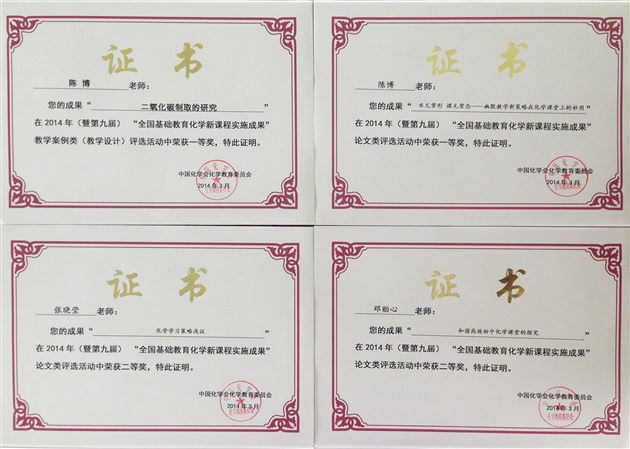 证书
陈 博 老师：
您的成果“ 二氧化碳制取的研究 ”
在 2014 年（暨第九届） “全国基础教育化学新课程实施成果”
教学案例类（教学设计）评选活动中荣获一等奖，特此证明。
中国化学会化学教育委员会
2014 年 3 月
证书
陈博 老师：
您的成果“ 水无常形 课无常态——幽默教学新策略在化学课堂上的妙用 ”
在 2014 年（暨第九届） “全国基础教育化学新课程实施成果”
论文类评选活动中荣获一等奖，特此证明。
中国化学会化学教育委员会
2014 年 3 月
证书
张晓莹 老师：
您的成果“ 化学学习策略浅议 ”
在 2014 年（暨第九届） “全国基础教育化学新课程实施成果”
论文类评选活动中荣获二等奖，特此证明。
中国化学会化学教育委员会
2014 年 3 月
证书
邓贻心 老师：
您的成果“ 和谐高效初中化学课堂的探究 ”
在 2014 年（暨第九届） “全国基础教育化学新课程实施成果”
论文类评选活动中荣获二等奖，特此证明。
中国化学会化学教育委员会
2014 年 3 月